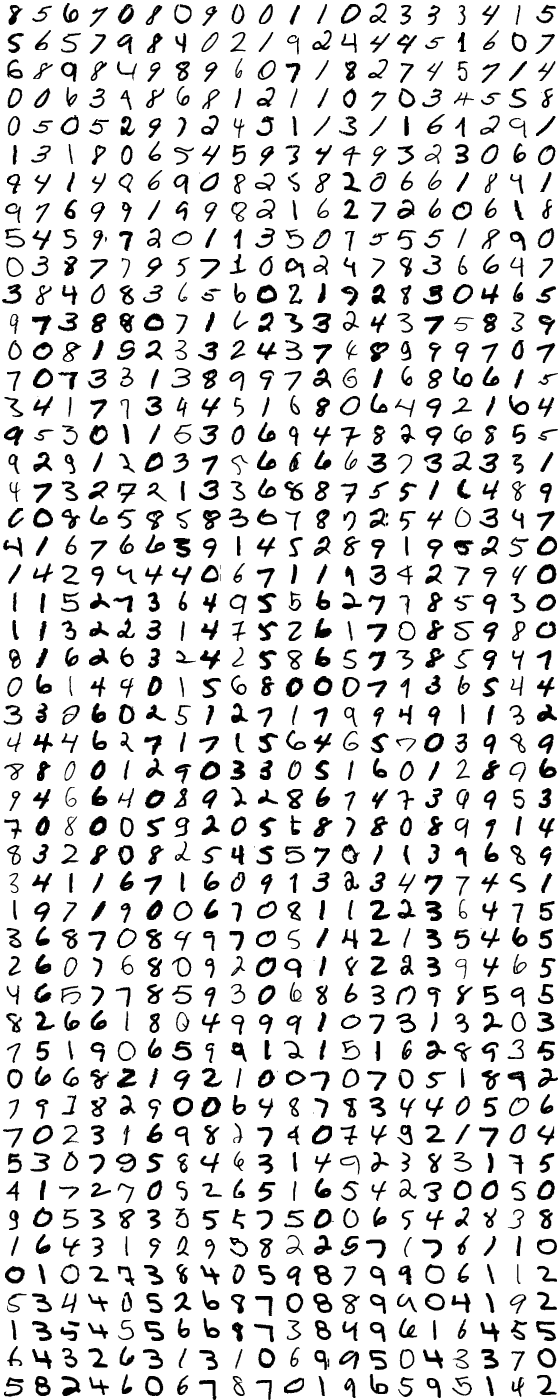 8 5 6 7 0 8 0 9 0 0 1 1 0 2 3 3 3 4 1 5
5 6 5 7 9 8 4 0 2 1 9 2 4 4 4 5 1 6 0 7
6 8 9 8 4 9 8 9 6 0 7 1 8 2 7 4 5 7 1 4
0 0 6 3 9 8 6 8 1 2 1 1 0 7 0 3 4 5 5 8
0 5 0 5 2 9 7 2 4 5 1 1 3 1 1 6 1 2 9 1
1 3 1 8 0 6 5 4 5 9 3 4 4 9 3 2 3 0 6 0
9 4 1 4 8 6 9 0 8 2 5 8 2 0 6 6 1 8 4 1
9 7 6 9 9 1 9 9 8 2 1 6 2 7 2 6 0 6 1 8
5 4 5 9 7 2 0 1 1 3 5 0 7 5 5 5 1 8 9 0
0 3 8 7 7 9 5 7 1 0 9 2 4 7 8 3 6 6 4 7
3 8 4 0 8 3 6 5 6 0 2 1 9 2 8 3 0 4 6 5
9 7 3 8 8 0 7 1 6 2 3 3 2 4 3 7 5 8 3 9
0 0 8 1 5 2 3 3 2 4 3 7 4 8 9 9 9 7 0 7
7 0 7 3 3 1 3 8 9 9 7 2 6 1 6 8 6 6 1 5
3 4 1 7 7 3 4 4 5 1 6 8 0 6 4 9 2 1 6 4
9 5 3 0 1 1 5 3 0 6 9 4 7 8 2 9 6 8 5 5
9 2 9 1 2 0 3 7 5 6 6 6 6 3 7 3 2 3 3 1
4 7 3 2 7 2 1 3 3 6 8 8 7 5 5 1 6 4 8 9
6 0 8 6 5 8 5 8 3 6 7 8 7 2 5 4 0 3 4 7
4 1 6 7 6 6 3 9 1 4 5 2 8 9 1 9 5 2 5 0
1 4 2 9 4 4 4 0 6 7 1 1 9 3 4 2 7 9 4 0
1 1 5 2 7 3 6 4 9 5 5 6 2 7 7 8 5 9 3 0
1 1 3 2 2 3 1 4 7 5 2 6 1 7 0 8 5 9 8 0
8 1 6 2 6 3 2 4 2 5 8 6 5 7 3 8 5 9 4 7
0 6 1 4 4 0 1 5 6 8 0 0 0 7 1 3 6 5 4 4
3 3 0 6 0 2 5 1 2 7 1 7 9 9 4 9 1 1 3 2
4 4 4 6 2 7 1 7 1 5 6 4 6 5 7 0 3 9 8 9
8 8 0 0 1 2 9 0 3 3 0 5 1 6 0 1 2 8 9 6
9 4 6 6 4 0 8 9 2 2 8 6 7 4 7 3 9 9 5 3
7 0 8 0 0 5 9 2 0 5 6 8 7 8 0 8 9 9 1 4
8 3 2 8 0 8 2 5 4 5 5 7 0 1 1 3 9 6 8 9
3 4 1 1 6 7 1 6 0 9 1 3 2 3 4 7 7 4 5 1
1 9 7 1 9 0 0 6 7 0 8 1 1 2 2 3 6 4 7 5
3 6 8 7 0 8 4 9 7 0 5 1 4 2 1 3 5 4 6 5
2 6 0 7 6 8 0 9 2 0 9 1 8 2 2 3 9 4 6 5
4 6 5 7 7 8 5 9 3 0 6 8 6 3 0 9 8 5 9 5
8 2 6 6 1 8 0 4 9 9 9 1 0 7 3 1 3 2 0 3
7 5 1 9 0 6 5 9 9 9 1 2 1 5 1 6 2 8 9 3 5
0 6 6 8 2 1 9 2 1 0 0 7 0 7 0 5 1 8 9 2
7 9 1 8 2 9 0 0 6 4 8 7 8 3 4 4 0 5 0 6
7 0 2 3 1 6 9 8 2 7 9 0 7 4 9 2 1 7 0 4
5 3 0 7 9 5 8 4 6 3 1 4 9 2 3 8 3 1 7 5
4 1 7 2 7 0 5 2 6 5 1 6 5 4 2 3 0 0 5 0
9 0 5 3 8 3 3 5 5 7 5 0 0 6 5 4 2 8 3 8
1 6 4 3 1 9 2 9 5 8 2 2 5 7 1 7 8 1 1 0
0 1 0 2 7 3 8 4 0 5 9 8 7 9 9 0 6 1 1 2
5 3 4 4 0 5 2 6 8 7 0 8 8 9 9 0 4 1 9 2
1 3 5 4 5 5 6 6 8 7 3 8 4 9 6 1 6 4 5 5
6 4 3 2 6 3 1 3 1 0 6 9 9 5 0 4 3 3 7 0
5 8 2 4 6 0 6 7 8 7 0 1 9 6 5 9 5 1 4 2